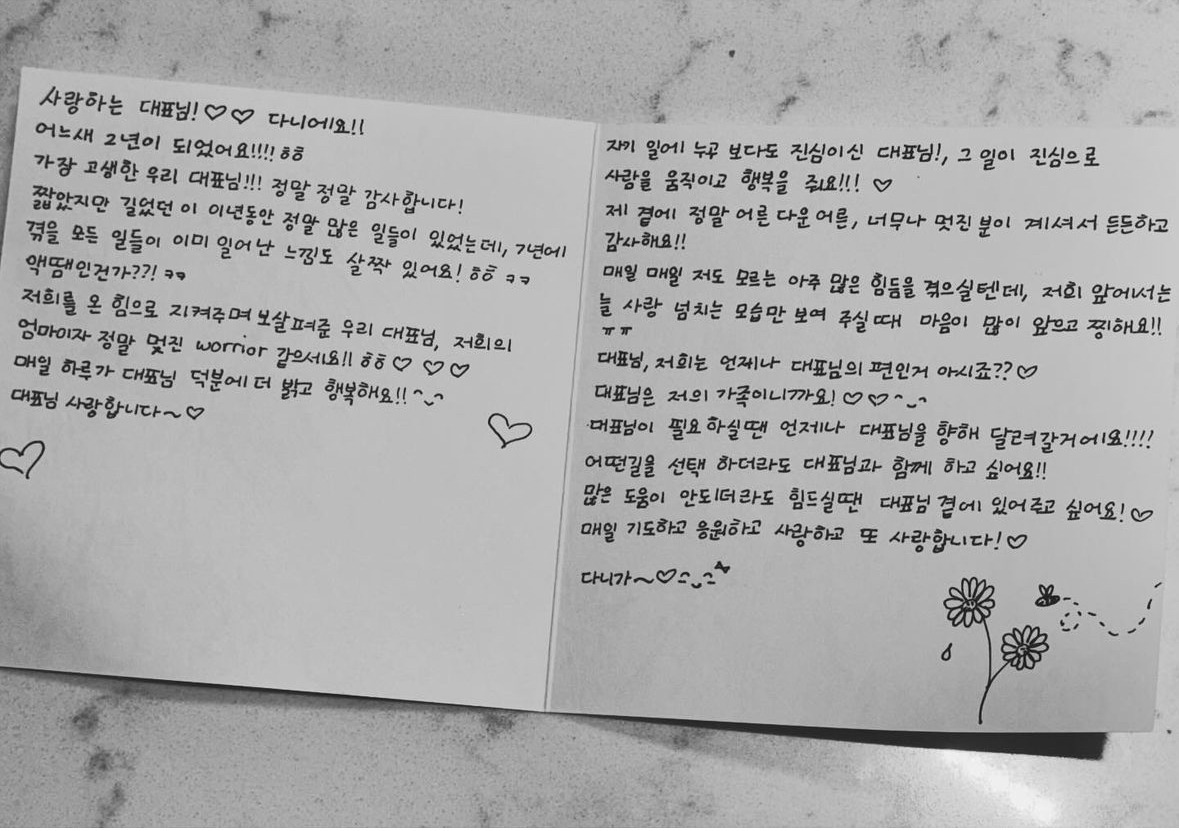 사랑하는 대표님!♡♡ 다니에요!!
어느새 2년이 되었어요!!!! ㅎㅎ
가장 고생한 우리 대표님!!! 정말 정말 감사합니다!
짧았지만 길었던 이 이년동안 정말 많은 일들이 있었는데, 7년에
겪을 모든 일들이 이미 일어난 느낌도 살짝 있어요! ㅎㅎ ㅋㅋ
액땜인건가??! ㅋㅋ
저희를 온 힘으로 지켜주며 보살펴준 우리 대표님, 저희의
엄마이자 정말 멋진 worrior 같으세요!! ㅎㅎ♡ ♡ ♡
매일 하루가 대표님 덕분에 더 밝고 행복해요!! ^‿^
대표님 사랑합니다~♡
자기 일에 누구 보다도 진심이신 대표님!, 그 일이 진심으로
사람을 움직이고 행복을 줘요!!! ♡
제 곁에 정말 어른 다운 어른, 너무나 멋진 분이 계셔서 든든하고
감사해요!!
매일 매일 저도 모르는 아주 많은 힘듬을 겪으실텐데, 저희 앞에서는
늘 사랑 넘치는 모습만 보여 주실 때 마음이 많이 앞으고 찡해요!!
ㅠㅠ
대표님, 저희는 언제나 대표님의 편인거 아시죠??♡
대표님은 저의 가족이니까요! ♡♡ ^‿^
대표님이 필요하실땐 언제나 대표님을 향해 달려갈거에요!!!!
어떤길을 선택 하더라도 대표님과 함께 하고 싶어요!!
많은 도움이 안되더라도 힘드실땐 대표님 곁에 있어주고 싶어요!♡
매일 기도하고 응원하고 사랑하고 또 사랑합니다!♡
다니가~♡